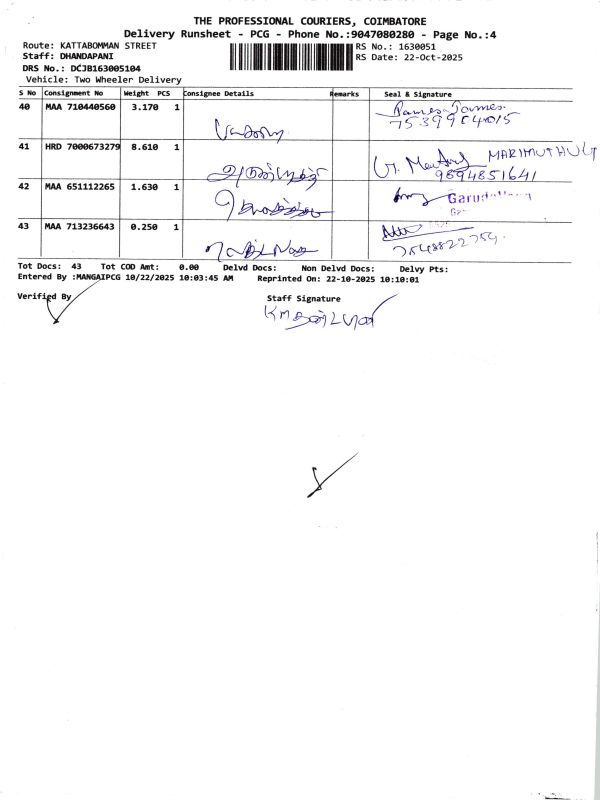 THE PROFESSIONAL COURIERS, COIMBATORE
Delivery Runsheet - PCG - Phone No.:9047080280 - Page No.:4
Route: KATTABOMMAN STREET RS No.: 1630051
Staff: DHANDAPANI RS Date: 22-Oct-2025
DRS No.: DCJB163005104
Vehicle: Two Wheeler Delivery
S No Consignment No Weight PCS Consignee Details Remarks Seal & Signature
40 MAA 710440560 3.170 1
41 HRD 7000673279 8.610 1 MARIMUTHU G
9894851641
42 MAA 651112265 1.630 1
43 MAA 713236643 0.250 1
Tot Docs: 43 Tot COD Amt: 0.00 Delvd Docs: Non Delvd Docs: Delvy Pts:
Entered By :MANGAIPCG 10/22/2025 10:03:45 AM Reprinted On: 22-10-2025 10:10:01
Verified By Staff Signature